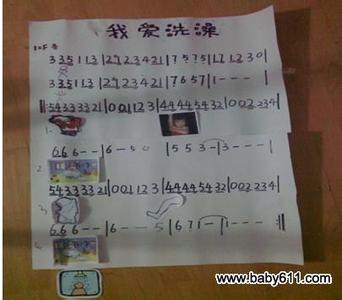 我爱洗澡
1=F
3 3 5 1 1 3 | 2 1 2 3 4 2 1 | 7 5 7 5 | 1 7 1 2 3 0 |
3 3 5 1 1 3 | 2 1 2 3 4 2 1 | 7 6 5 7 | 1 - - - |
‖: 5 4 3 3 3 2 1 | 0 0 1 1 2 3 | 4 4 4 4 5 4 3 2 | 0 0 2 2 3 4 |
1.
6 6 6 - - | 6 - 5 0 | 5 5 3 - | 3 - - - |
2
5 4 3 3 3 2 1 | 0 0 1 1 2 3 | 4 4 4 4 5 4 3 2 | 0 0 2 2 3 4 |
3
6 6 6 - - | 6 - - 5 | 6 7 1 - | 1 - - - :‖
www.baby611.com